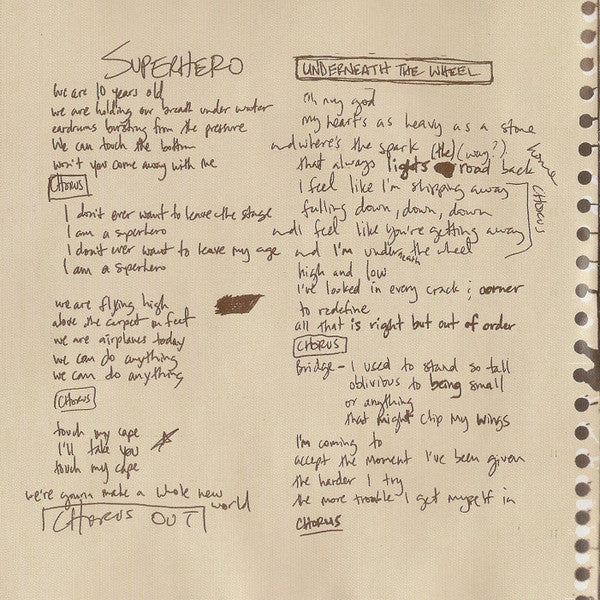 SUPERHERO
We are 10 years old
we are holding our breath under water
eardrums bursting from the pressure
We can touch the bottom
won't you come away with me
CHORUS
I don't ever want to leave the stage
I am a superhero
I don't ever want to leave my age
I am a superhero
we are flying high
above the carpet on feet
we are airplanes today
we can do anything
we can do anything
CHORUS
touch my cape
I'll take you
touch my cape
we're gonna make a whole new world
CHORUS OUT
UNDERNEATH THE WHEEL
Oh my god
my heart's as heavy as a stone
and where's the spark (the) (way?)
that always lights road back home
I feel like I'm slipping away
falling down, down, down
and I feel like you're getting away
and I'm underneath the wheel
CHORUS
high and low
I've looked in every crack & corner
to redefine
all that is right but out of order
CHORUS
Bridge - I used to stand so tall
oblivious to being small
or anything
that might clip my wings
I'm coming to
accept the moment I've been given
the harder I try
the more trouble I get myself in
CHORUS